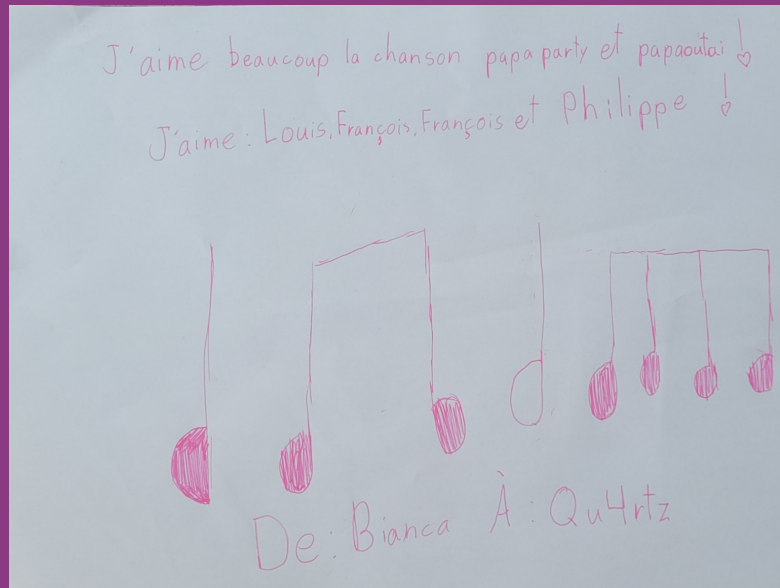 J'aime beaucoup la chanson papa party et papaoutai !
J'aime : Louis, François, François et Philippe !
De : Bianca À : Qu4rtz